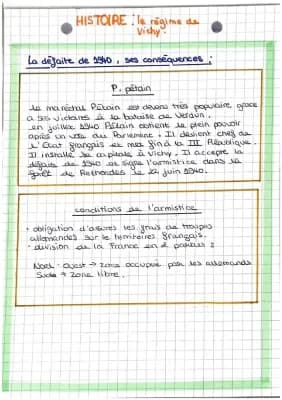 HISTOIRE : le régime de
Vichy.
La défaite de 1940, ses conséquences :
P. pétain
Le maréchal Pétain est devenu très populaire grace
à ses victoires à la bataille de Verdun.
en juillet 1940 Pétain obtient le plein pouvoir
après un vote du Parlement. Il devient chef de
l'Etat français et met fin à la III République.
Il installe sa capitale à Vichy. Il accepte la
défaite de 1940 et signe l'armistice dans la
forêt de Rethondes le 22 juin 1940.
conditions de l'armistice
• obligation d'assurer les frais de troupes
allemandes sur le territoires français.
• division de la France en 2 parties :
Nord-Ouest → zone occupée par les allemands
Sud → zone libre.